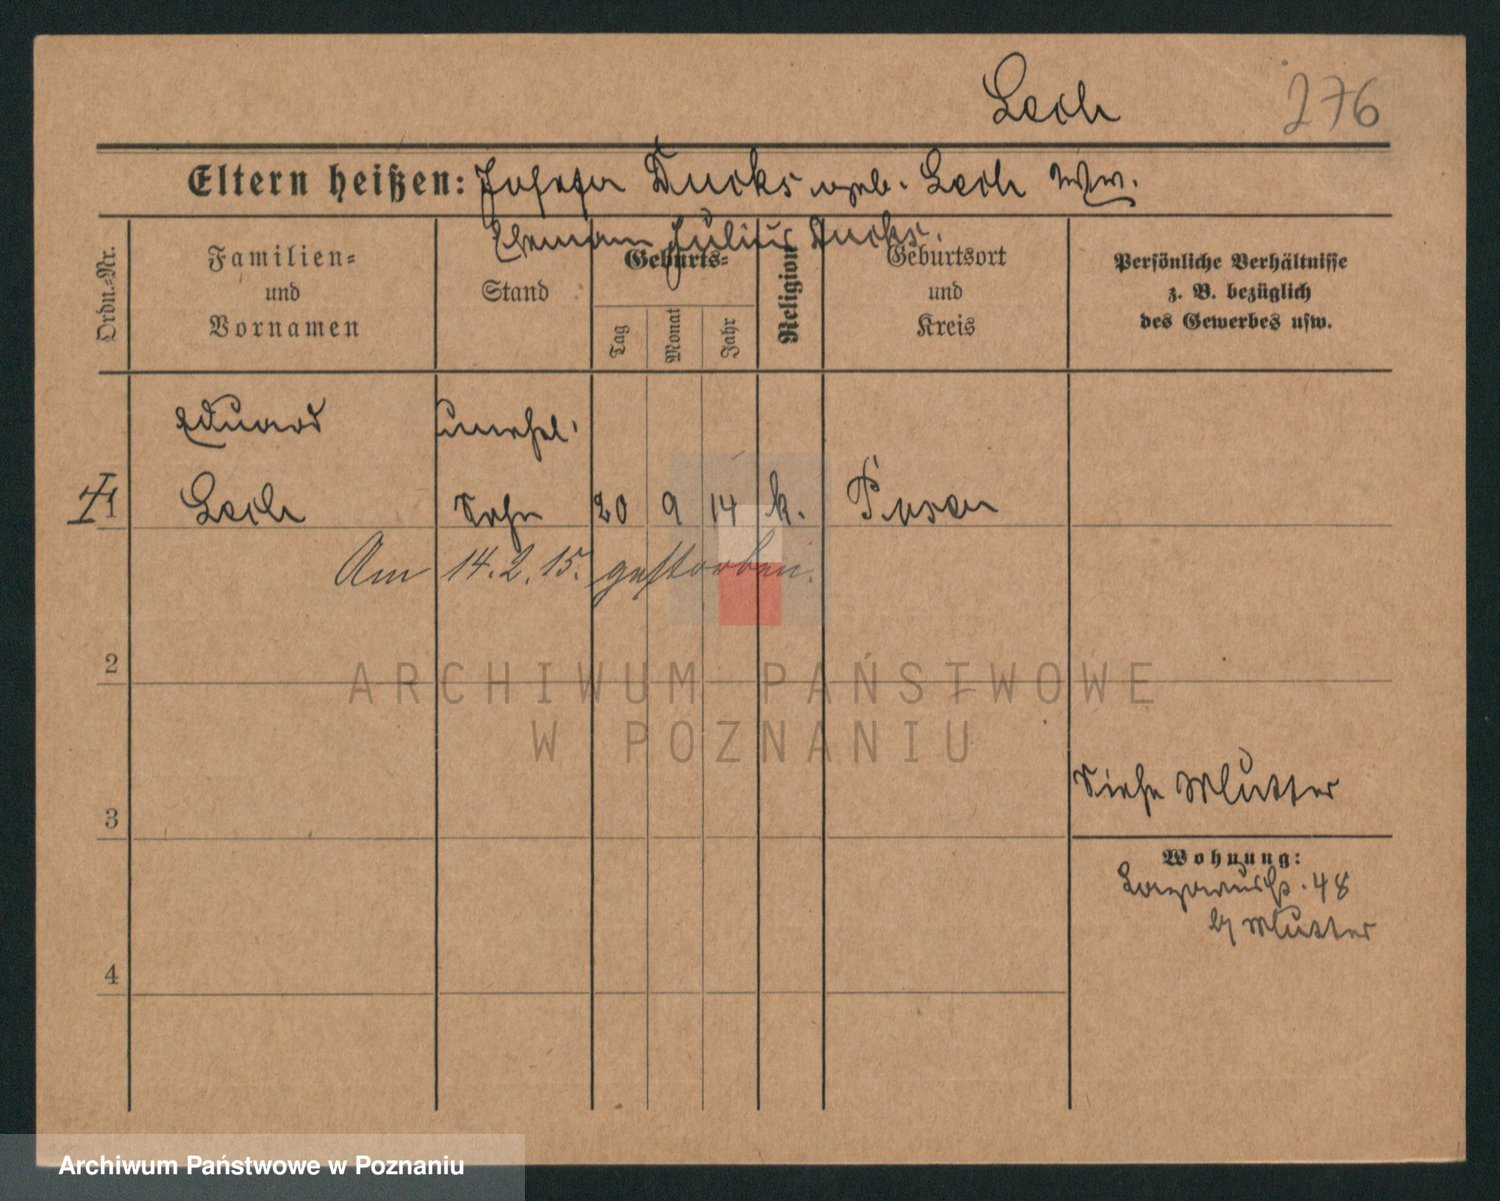 Lech
276
Eltern heißen: Josefa Ducks geb. Lech Ww.
Ehemann Julius Ducks.
Ordn.-Nr.
Familien-
und
Vornamen
Stand
Geburts-
Tag
Monat
Jahr
Religion
Geburtsort
und
Kreis
Persönliche Verhältnisse
z. B. bezüglich
des Gewerbes usw.
Eduard unehel.
1 Lech Sohn 20 9 14 k. Posen
Am 14.2.15. gestorben.
2
ARCHIWUM PAŃSTWOWE
W POZNANIU
Siehe Mutter
3
Wohnung:
Lazarusstr. 48
b/ Mutter
4
Archiwum Państwowe w Poznaniu